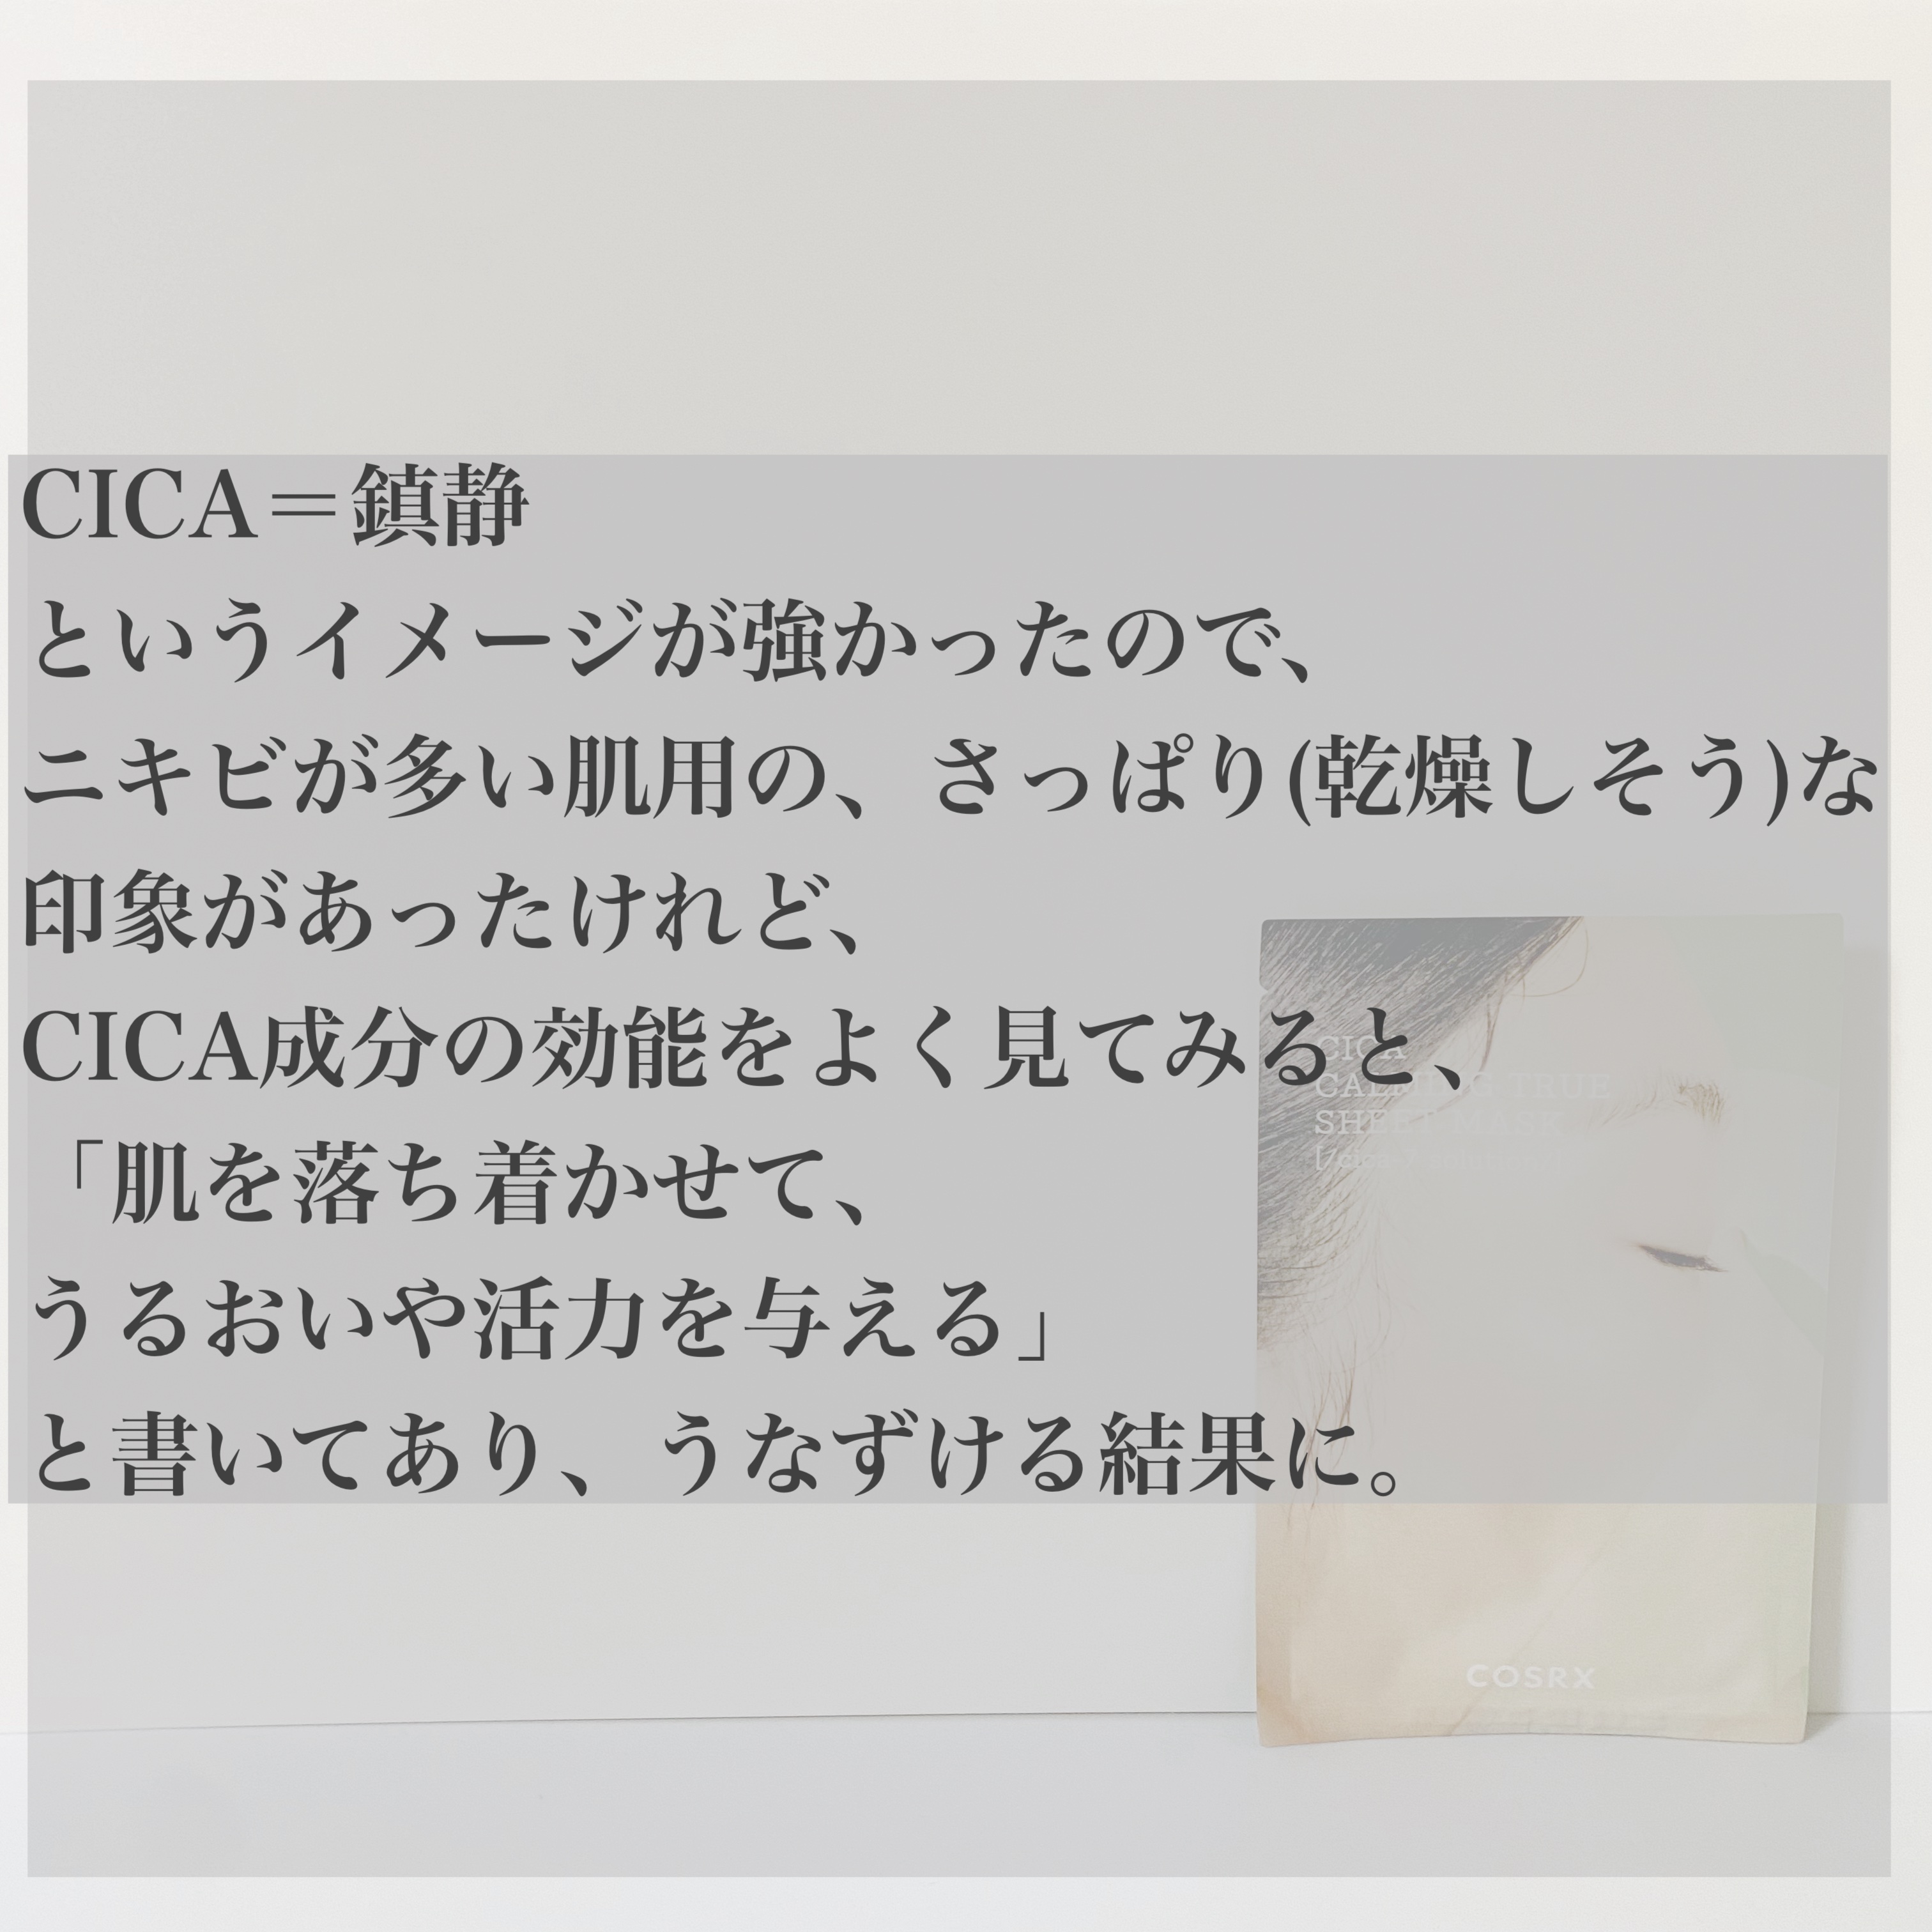 CICA＝鎮静
というイメージが強かったので、
ニキビが多い肌用の、さっぱり(乾燥しそう)な
印象があったけれど、
CICA成分の効能をよく見てみると、
「肌を落ち着かせて、
うるおいや活力を与える」
と書いてあり、うなずける結果に。
CICA
CALMING TRUE
SHEET MASK
COSRX